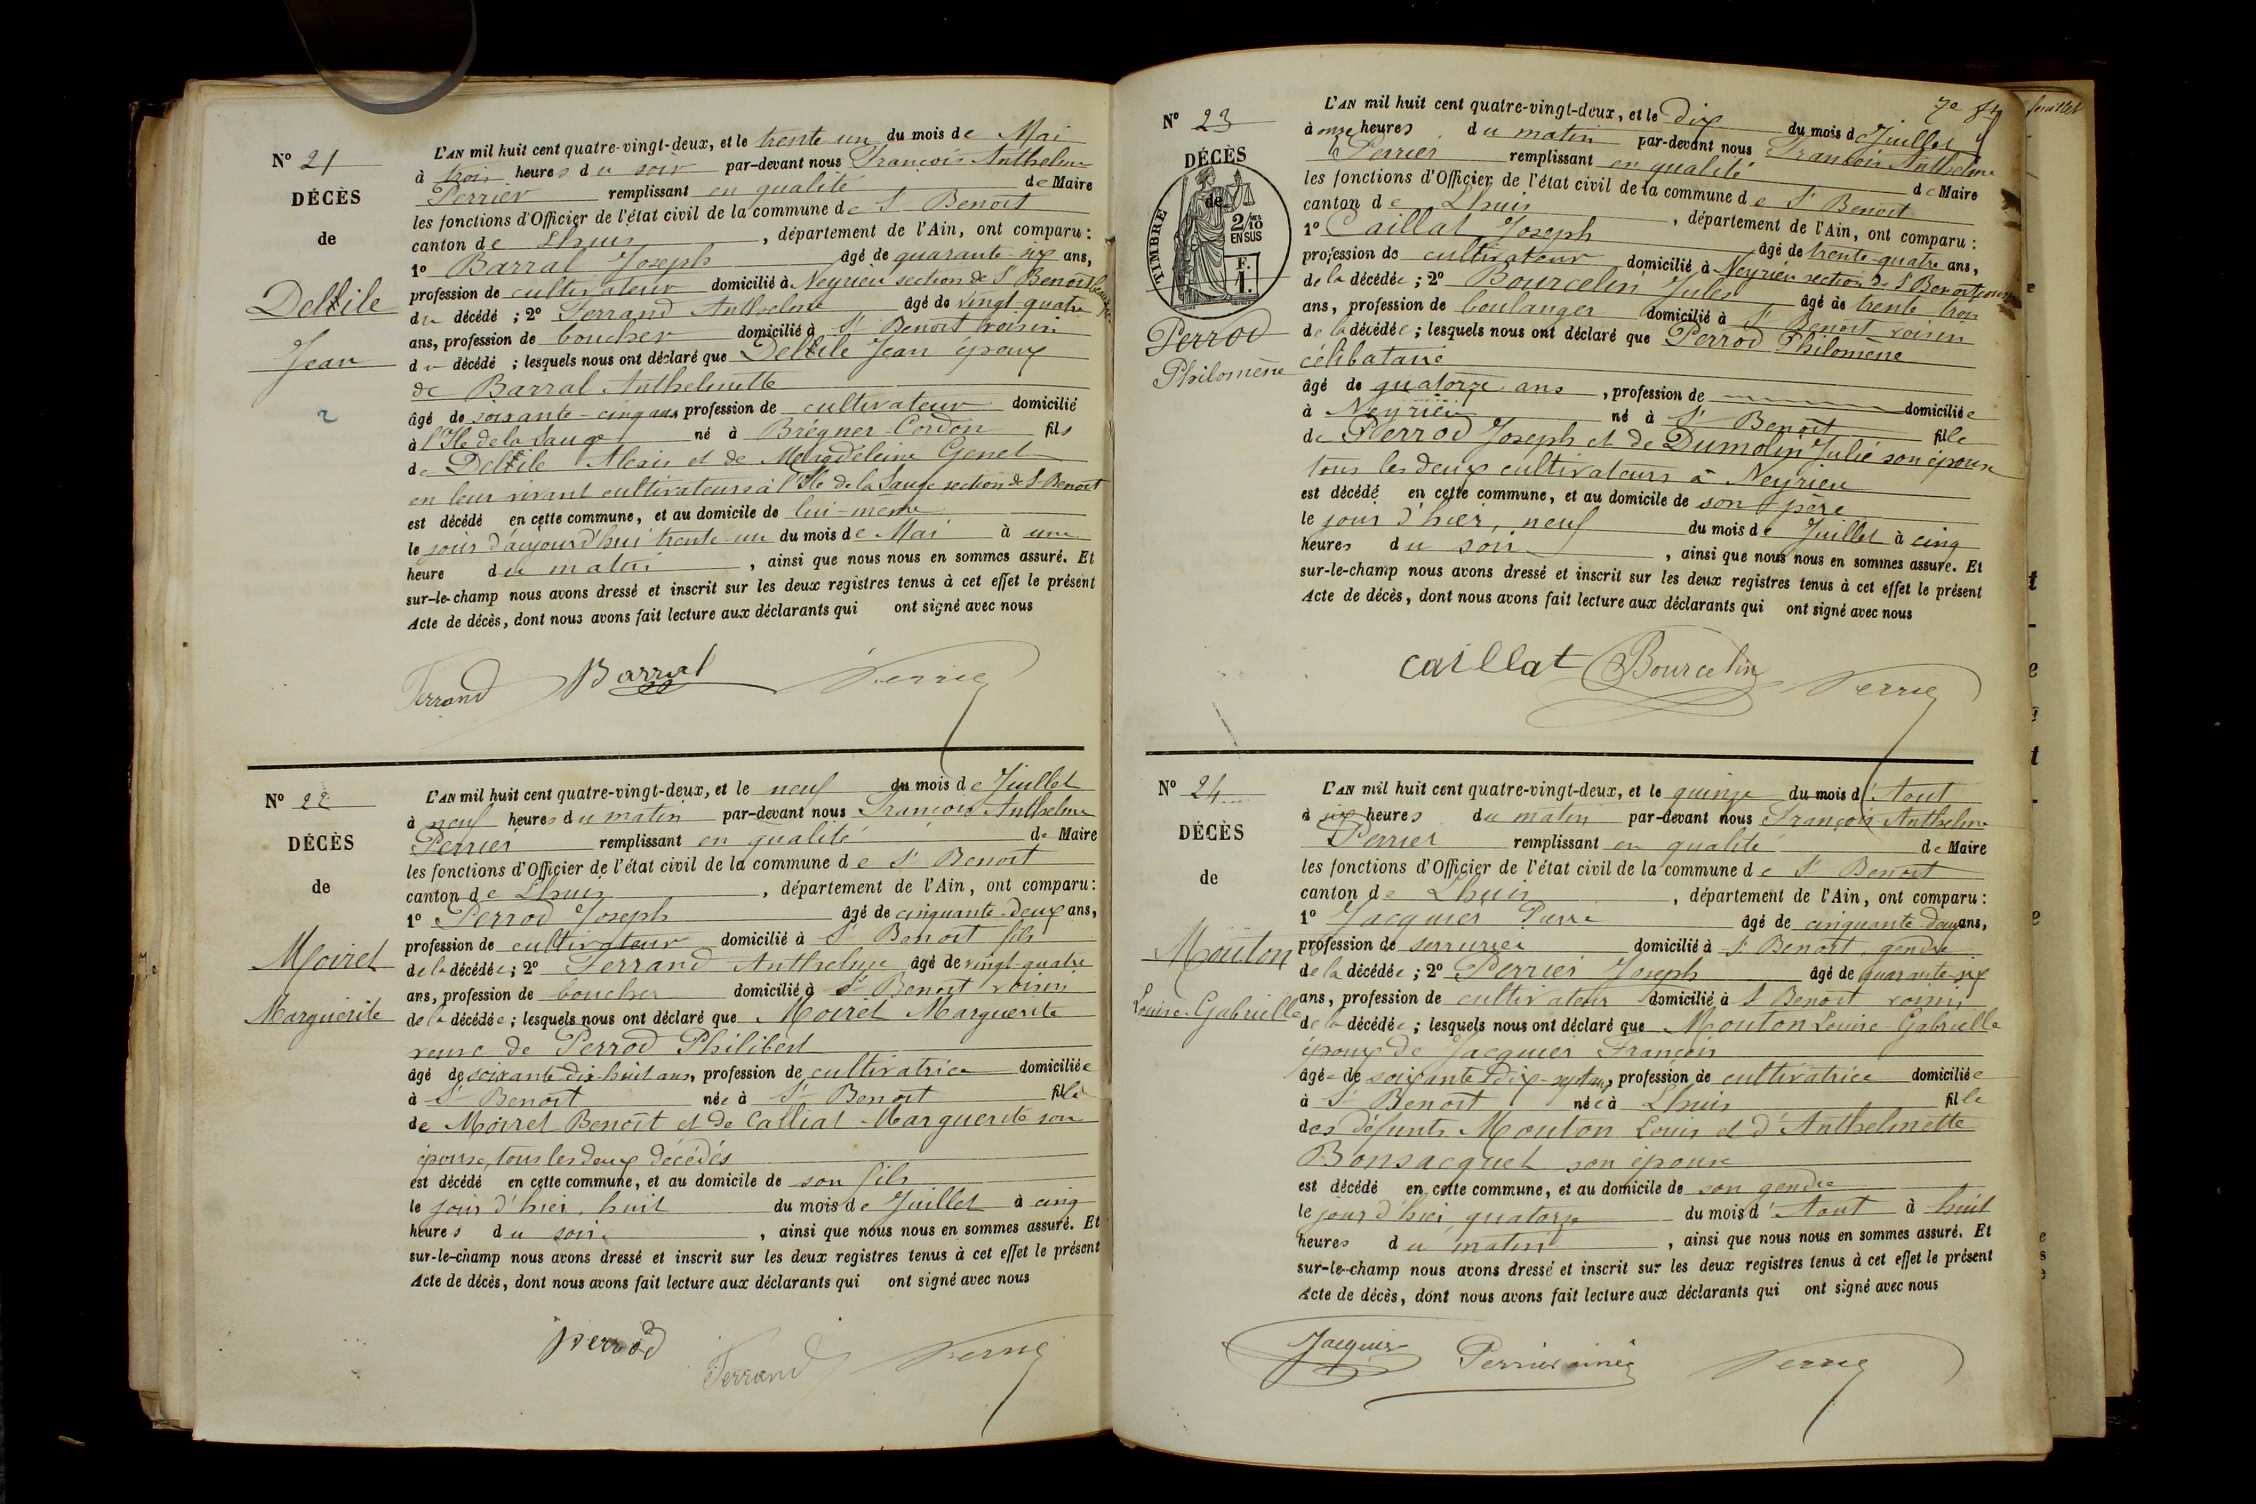 N° 21
DÉCÈS
de
Deltile
Jean
2
L'AN mil huit cent quatre-vingt-deux, et le trente un du mois de Mai
à trois heures du soir par-devant nous François Anthelme
Perrier remplissant en qualité de Maire
les fonctions d'Officier de l'état civil de la commune de St Benoit
canton de Lhuis, département de l'Ain, ont comparu :
1° Barral Joseph âgé de quarante-six ans,
profession de cultivateur domicilié à Neyrieu section de St Benoit
du décédé ; 2° Ferrand Anthelme âgé de vingt-quatre
ans, profession de boucher domicilié à St Benoit voisin
du décédé ; lesquels nous ont déclaré que Deltile Jean époux
de Barral Anthelmette
âgé de soixante-cinq ans, profession de cultivateur domicilié
à l'Ile de la Sauge né à Brégner-Cordon fils
de Deltile Alexis et de Magdeleine Genet
en leur vivant cultivateurs à l'Ile de la Sauge section de St Benoit
est décédé en cette commune, et au domicile de lui-même
le jour d'aujourd'hui trente-un du mois de Mai à une
heure du matin, ainsi que nous nous en sommes assuré. Et
sur-le-champ nous avons dressé et inscrit sur les deux registres tenus à cet effet le présent
Acte de décès, dont nous avons fait lecture aux déclarants qui ont signé avec nous
Ferrand Barral Perrier
N° 22
DÉCÈS
de
Moiret
Marguerite
L'AN mil huit cent quatre-vingt-deux, et le neuf du mois de Juillet
à neuf heures du matin par-devant nous François Anthelme
Perrier remplissant en qualité de Maire
les fonctions d'Officier de l'état civil de la commune de St Benoit
canton de Lhuis, département de l'Ain, ont comparu :
1° Perrod Joseph âgé de cinquante-deux ans,
profession de cultivateur domicilié à St Benoit fils
de la décédée ; 2° Ferrand Anthelme âgé de vingt-quatre
ans, profession de boucher domicilié à St Benoit voisin
de la décédée ; lesquels nous ont déclaré que Moiret Marguerite
veuve de Perrod Philibert
âgé de soixante dix-huit ans, profession de cultivatrice domiciliée
à St Benoit née à St Benoit fille
de Moiret Benoit et de Calliat Marguerite son
épouse, tous les deux décédés
est décédé en cette commune, et au domicile de son fils
le jour d'hier, huit du mois de Juillet à cinq
heures du soir, ainsi que nous nous en sommes assuré. Et
sur-le-champ nous avons dressé et inscrit sur les deux registres tenus à cet effet le présent
Acte de décès, dont nous avons fait lecture aux déclarants qui ont signé avec nous
perrod Ferrand Perrier
7e
N° 23
DÉCÈS
de
TIMBRE
2/10 EN SUS
F. 1
Perrod
Philomène
L'AN mil huit cent quatre-vingt-deux, et le dix du mois de Juillet
à onze heures du matin par-devant nous François Anthelme
Perrier remplissant en qualité de Maire
les fonctions d'Officier de l'état civil de la commune de St Benoit
canton de Lhuis, département de l'Ain, ont comparu :
1° Caillat Joseph âgé de trente-quatre ans,
profession de cultivateur domicilié à Neyrieu section de St Benoit
de la décédée ; 2° Bourcelin Jules âgé de trente trois
ans, profession de boulanger domicilié à St Benoit voisin
de la décédée ; lesquels nous ont déclaré que Perrod Philomène
célibataire
âgé de quatorze ans, profession de domiciliée
à Neyrieu né à St Benoit fille
de Perrod Joseph et de Dumolin Julie son épouse
tous les deux cultivateurs à Neyrieu
est décédé en cette commune, et au domicile de son père
le jour d'hier, neuf du mois de Juillet à cinq
heures du soir, ainsi que nous nous en sommes assuré. Et
sur-le-champ nous avons dressé et inscrit sur les deux registres tenus à cet effet le présent
Acte de décès, dont nous avons fait lecture aux déclarants qui ont signé avec nous
caillat Bourcelin Perrier
N° 24
DÉCÈS
de
Mouton
Louise-Gabrielle
L'AN mil huit cent quatre-vingt-deux, et le quinze du mois d'Aout
à six heures du matin par-devant nous François Anthelme
Perrier remplissant en qualité de Maire
les fonctions d'Officier de l'état civil de la commune de St Benoit
canton de Lhuis, département de l'Ain, ont comparu :
1° Jacquier Pierre âgé de cinquante deux ans,
profession de serrurier domicilié à St Benoit, gendre
de la décédée ; 2° Perrier Joseph âgé de quarante-six
ans, profession de cultivateur domicilié à St Benoit voisin
de la décédée ; lesquels nous ont déclaré que Mouton Louise-Gabrielle
épouse de Jacquier François
âgée de soixante dix-sept ans, profession de cultivatrice domiciliée
à St Benoit née à Lhuis fille
des défunts Mouton Louis et d'Anthelmette
Bonsacquet son épouse
est décédé en cette commune, et au domicile de son gendre
le jour d'hier quatorze du mois d'Aout à huit
heures du matin, ainsi que nous nous en sommes assuré. Et
sur-le-champ nous avons dressé et inscrit sur les deux registres tenus à cet effet le présent
Acte de décès, dont nous avons fait lecture aux déclarants qui ont signé avec nous
Jacquier Perrier ainé Perrier